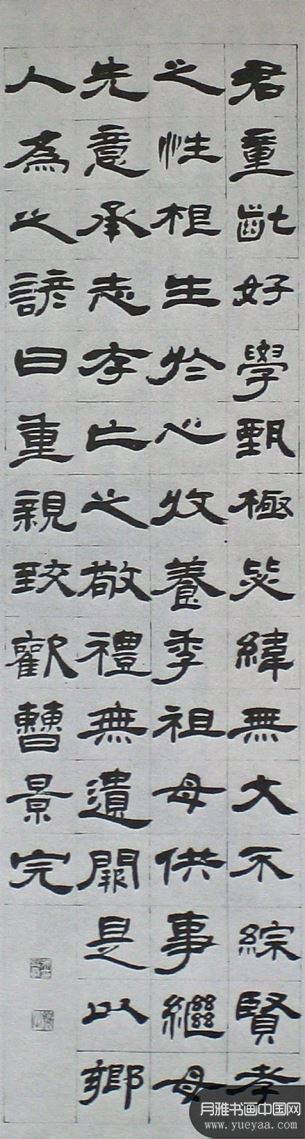 君童齔好學甄極毖緯無文不綜賢孝
之性根生於心收養季祖母供事繼母
先意承志存亡之敬禮無遺闕是以鄉
人為之諺曰重親致歡曹景完
月雅书画中国网
www.yueyaa.com